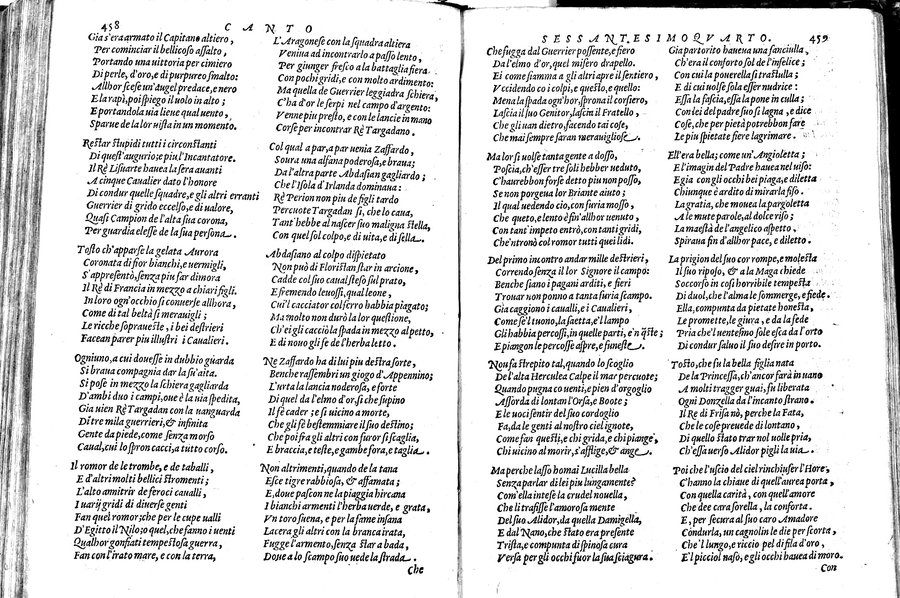 458 CANTO
Gia s'era armato il Capitano altiero,
Per cominciar il bellicoso assalto,
Portando una uittoria per cimiero
Di perle, d'oro, e di purpureo smalto:
Allhor scese un'augel predace, e nero
E la rapì, poi spiego il uolo in alto;
E portandola via lieue qual uento,
Sparue da la lor uista in un momento.
Restar stupidi tutti i circonstanti
Di quest'augurio; e piu l'Incantatore.
Il Rè Lisuarte hauea la sera auanti
A cinque Caualier dato l'honore
Di condur quelle squadre, e gli altri erranti
Guerrier di grido eccelso, e di ualore,
Quasi Campion de l'alta sua corona,
Per guardia elesse de la sua persona.
Tosto ch'apparse la gelata Aurora
Coronata di fior bianchi, e uermigli,
S'appresentò, senza piu far dimora
Il Rè di Francia in mezzo a chiari figli.
In loro ogn'occhio si conuerse allhora,
Come di tal beltà si meraugli;
Le ricche soprauesle, i bei destrieri
Facean parer piu illustri i Caualieri.
Ogniuno, a cui douesse in dubbio guarda
Si braua compagnia dar la su'aita.
Si pose in mezzo la schiera gagliarda
D'ambi duo i campi, oue è la uia spedita,
Gia uien Rè Targadan con la uanguarda
Ditre mila guerrieri, & infinita
Gente da piede, come senza morso
Caual, cui lo spron cacci, a tutto corso.
Il romor de le trombe, e de taballi,
E d'altri molti bellici stromenti;
L'alto amitrir de feroci caualli,
I uarij gridi di diuerse genti
Fan quel romor; che per le cupe ualli
D'Egitto il Nilo; o quel, che fanno i uenti
Qualhor gonfiati tempestosa guerra,
Fan con l'irato mare, e con la terra,
L'Aragonese con la squadra altiera
Veniua ad incontrarlo a passo lento,
Per giunger fresco a la battaglia fiera
Con pochi gridi, e con molto ardimento:
Ma quella de Guerrier leggiadra schiera,
C'ha d'or le serpi nel campo d'argento:
Venne piu presto, e con le lancie in mano
Corse per incontrar Rè Targadano.
Col qual a par, a par uenia Zaffardo,
Soura una alfana poderosa, e braua;
Da l'altra parte Abdasian gagliardo;
Che l'Isola d'Irlanda dominaua:
Rè Perion non piu de figli tardo
Percuote Targadan sì, che lo caua,
Tant'hebbe al nascer suo maligna stella,
Con quel sol colpo, e di uita, e di sella.
Abdasiano al colpo dispietato
Non può di Floristan star in arcione,
Cadde col suo caual steso sul prato,
E fremendo leuossi, qual leone,
Cui'l cacciator col ferro habbia piagato;
Ma molto non durò la lor questione,
Ch'ei gli cacciò la spada in mezzo al petto,
E di nouo gli fe de l'herba letto.
Ne Zaffardo ha di lui piu destra sorte,
Benche rassembri un giogo d'Appennino;
L'urta la lancia noderosa, e forte
Di quel da l'elmo d'or sì che supino
Il fè cader; e sì uicino a morte,
Che gli fè bestemmiare il suo destino;
Che poi fra gli altri con furor si scaglia,
E braccia, e teste, e gambe fora, e taglia.
Non altrimenti, quando de la tana
Esce tigre rabbiosa, & affamata;
E, doue pascon ne la piaggia hircana
I bianchi armenti l'herba uerde, e grata,
Vn toro suena, e per la fame insana
Lacera gli altri con la branca irata,
Fugge l'armento, senza star a bada,
Doue a lo scampo suo uede la strada.
Che
SESSANTESIMOQVARTO. 459
Che fugga dal Guerrier possente, e fiero
Da l'elmo d'or, quel misero drapello.
Ei come fiamma a gli altri apre il sentiero,
Vccidendo co i colpi, e questo, e quello:
Mena la spada ogn'hor, sprona il corsiero,
Lascia il suo Genitor, lascin il Fratello,
Che gli uan dietro, facendo tai cose,
Che mai sempre saran merauigliose.
Ma lor si uolse tanta gente a dosso,
Poscia, ch'esser tre soli hebber ueduto,
C'haurebbon forse detto piu non posso,
Se non porgeua lor Briante aiuto;
Il qual uedendo cio, con furia mosso,
Che queto, e lento è fin'allhor uenuto,
Con tant'impeto entrò, con tanti gridi,
Che'ntronò col romor tutti quei lidi.
Del primo incontro andar mille destrieri,
Correndo senza il lor Signore il campo:
Benche siano i pagani arditi, e fieri
Trouar non ponno a tanta furia scampo.
Gia caggiono i caualli, e i Caualieri,
Come se'l tuono, la saetta, e'l lampo
Gli habbia percossi, in quelle parti, e'n q̃ste;
E piangon le percosse aspre, e funeste.
Non fa strepito tal, quando lo scoglio
De l'alta Herculea Calpe il mar percuote;
Quando pugna co uenti, e pien d'orgoglio
Assorda di lontan l'Orsa, e Boote;
E le uoci sentir del suo cordoglio
Fa, da le genti al nostro ciel ignote,
Come fan questi, e chi grida, e chi piange,
Chi uicino al morir, s'afflige, & ange.
Ma perche lasso homai Lucilla bella
Senza parlar di lei piu lungamente?
Com'ella intese la crudel nouella,
Che li trafisse l'amorosa mente
Del suo Alidor, da quella Damigella,
E dal Nano, che stato era presente
Trista, e compunta di spinosa cura
Versa per gli occhi fuor la sua sciagura.
Gia partorito haueua una fanciulla,
Ch'era il conforto sol de l'infelice;
Con cui la pouerella si trastulla;
E di cui uolse sola esser nudrice:
Essa la fascia, essa la pone in culla;
Con lei del padre suo si lagna, e dice
Cose, che per pietà potrebbon fare
Le piu spietate fiere lagrimare.
Ell'era bella; come un'Angioletta;
E l'imagin del Padre hauea nel uiso:
E gia con gli occhi bei piaga, e diletta
Chiunque è ardito di mirarla fiso.
La gratia, che mouea la pargoletta
A le mute parole, al dolce riso;
La maestà de l'angelico aspetto,
Spiraua fin d'allhor pace, e diletto.
La prigion del suo cor rompe, e molesta
Il suo riposo, & a la Maga chiede
Soccorso in così horribile tempesta
Di duol, che l'alma le sommerge, e fiede.
Ella, compunta da pietate honesta,
Le promette, le giura, e da la fede
Pria che'l uentesimo sole esca da l'orto
Di condur saluo il suo desire in porto.
Tosto, che fu la bella figlia nata
De la Princessa, ch'ancor farà in uano
A molti tragger guai, fu liberata
Ogni Donzella da l'incanto strano.
Il Re di Frisa nò, perche la Fata,
Che le cose preuede di lontano,
Di quello stato trar nol uuole pria,
Ch'essa uerso Alidor pigli la uia.
Poi che l'uscio del ciel rinchiuser l'Hore,
C'hanno la chiaue di quell'aurea porta,
Con quella carità, con quell'amore
Che dee cara sorella, la conforta.
E, per secura al suo caro Amadore
Condurla, un cagnolin le die per scorta,
Che'l lungo, e riccio pel di fila d'oro,
E'l picciol naso, e gli occhi hauea di moro.
Con